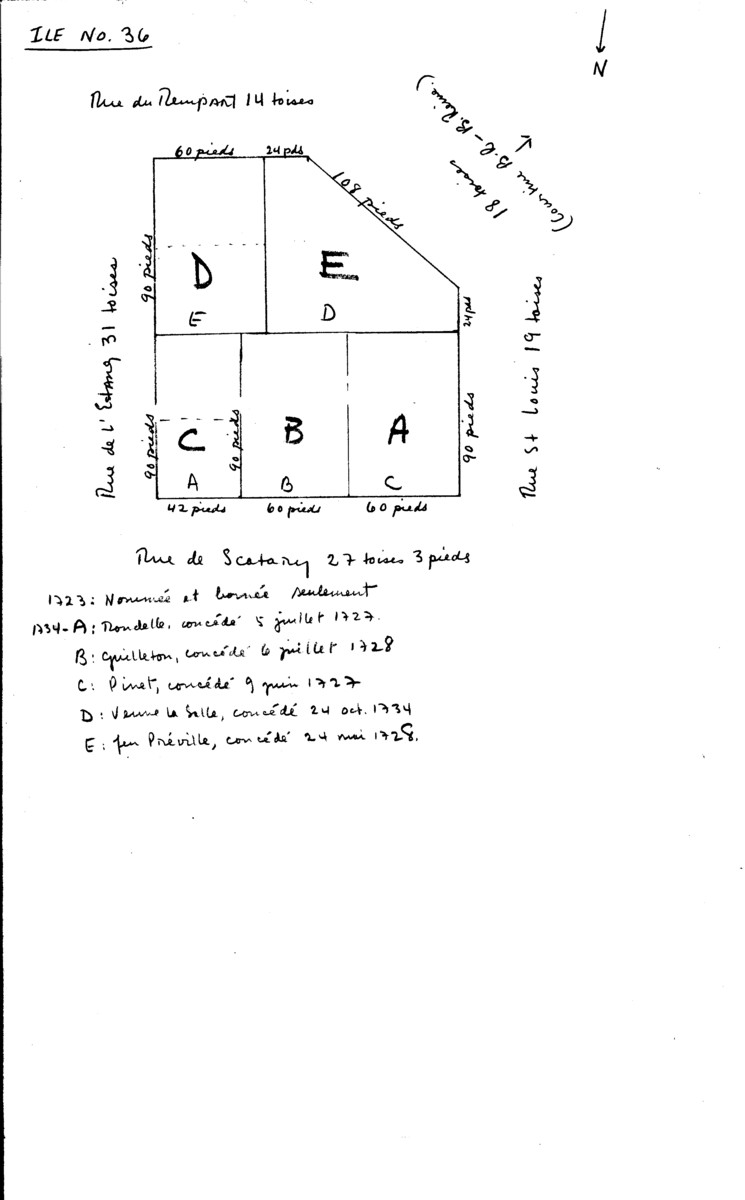 ILE No. 36
N
Rue du Rempart 14 toises
(Courtine B.R - B. Reine.)
18 toises
60 pieds
24 pds
108 pieds
90 pieds
D
E
E
D
24 pds
Rue de L'Estang 31 toises
Rue St Louis 19 toises
90 pieds
C
90 pieds
B
A
90 pieds
A
B
C
42 pieds
60 pieds
60 pieds
Rue de Scatary 27 toises 3 pieds
1723: Nommée et bornée seulement
1734-A: Rondelle, concédé 5 juillet 1727.
B: Guilleton, concédé 6 juillet 1728
C: Pinet, concédé 9 juin 1727
D: Veuve La Salle, concédé 24 oct. 1734
E: feu Préville, concédé 24 mai 1728.